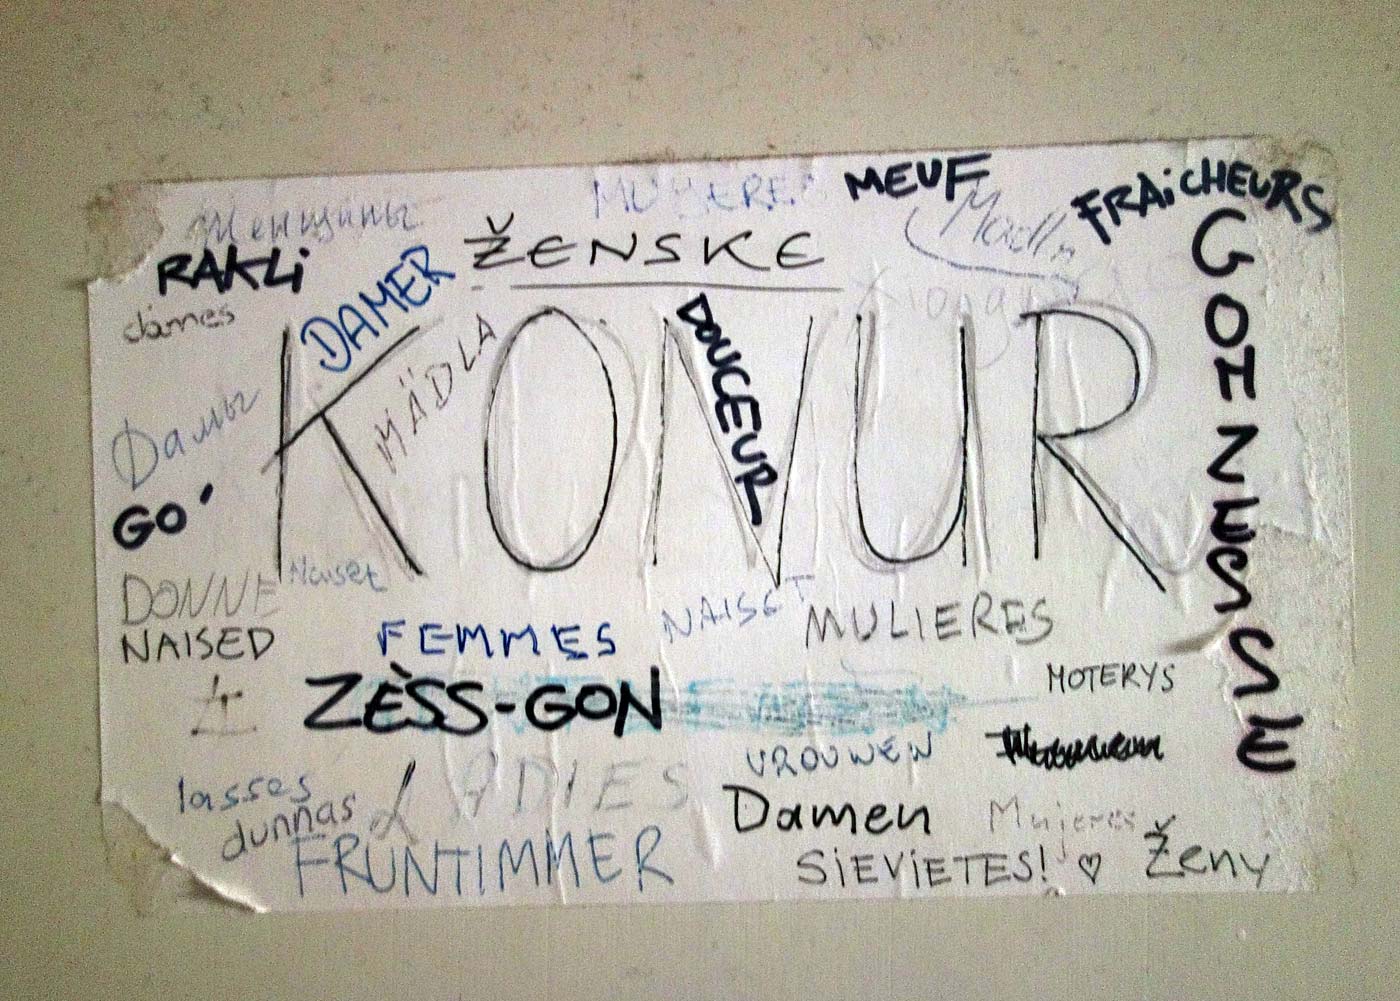 MUJERES
MEUF
FRAiCHEURS
Женщины
ŽENSKE
RAKLi
DAMER
dames
MÄDLA
KONUR
DOUCEUR
GOHZESSE
Дамы
GO'
DONNE
Naiset
NAISED
FEMMES
NAISET
MULIERES
ZÈSS-GON
MOTERYS
VROUWEN
lasses
LADIES
dunnas
Damen
Mujeres
FRUNTIMMER
SiEVIETES! ♡
Ženy